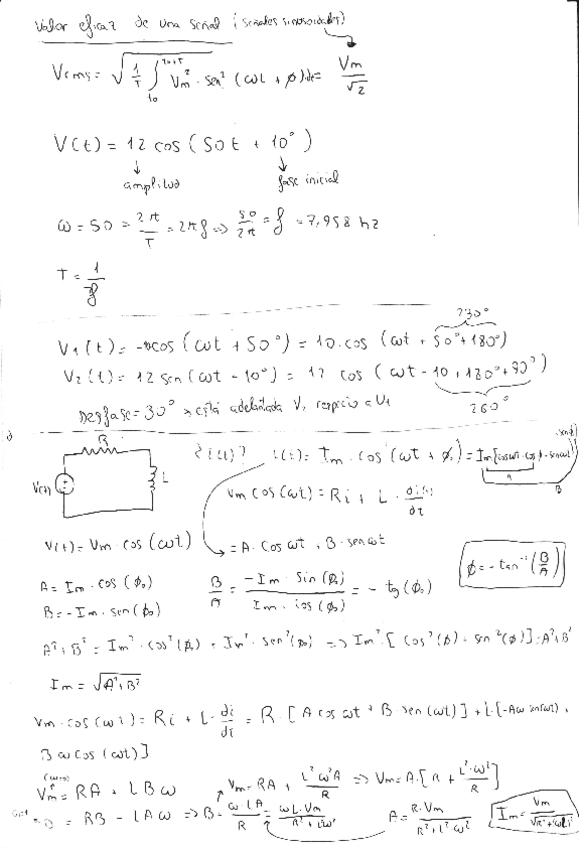 Valor eficaz de una señal (señales sinusoidales)
Vrms = √(1/T ∫_{to}^{to+T} Vm² · sen² (ωt + ϕ) dt = Vm/√2
V(t) = 12 cos (50t + 10°)
↓ amplitud ↓ fase inicial
ω = 50 = 2π/T = 2πf => 50/2π = f = 7,958 hz
T = 1/f
230°
V1(t) = -10cos (ωt + 50°) = 10·cos (ωt + 50°+180°)
V2(t) = 12 sen (ωt - 10°) = 12 cos (ωt - 10+180°+90°)
260°
Desfase = 30° → está adelantada V2 respecto a V1
R
L
V(t)
¿i(t)? i(t) = Im · cos (ωt + ϕo) = Im [cosωt · cosϕ - senωt · senϕ]
A B
Vm cos(ωt) = Ri + L · di(t)/dt
V(t) = Vm · cos (ωt)
= A · cos ωt + B · senωt
A = Im · cos (ϕo)
B = -Im · sen (ϕo)
B/A = -Im · sin (ϕo) / Im · cos (ϕo) = - tg (ϕo)
ϕ = - tan⁻¹ (B/A)
A² + B² = Im² · cos² (ϕo) + Im² · sen² (ϕo) => Im² · [cos² (ϕ) + sen² (ϕ)] = A²+B²
Im = √A²+B²
Vm · cos (ωt) = Ri + L · di/dt = R · [A cos ωt + B · sen (ωt)] + L · [-Aω senωt) +
B ω cos (ωt)]
Vm = RA + LBω Vm = RA + L²ω²A/R => Vm = A · [R + L²·ω²/R]
0 = RB - LAω => B = ω·LA/R = ωL·Vm/R²+L²ω² A = R·Vm/R²+L²·ω² Im = Vm/√R²+(ωL)²